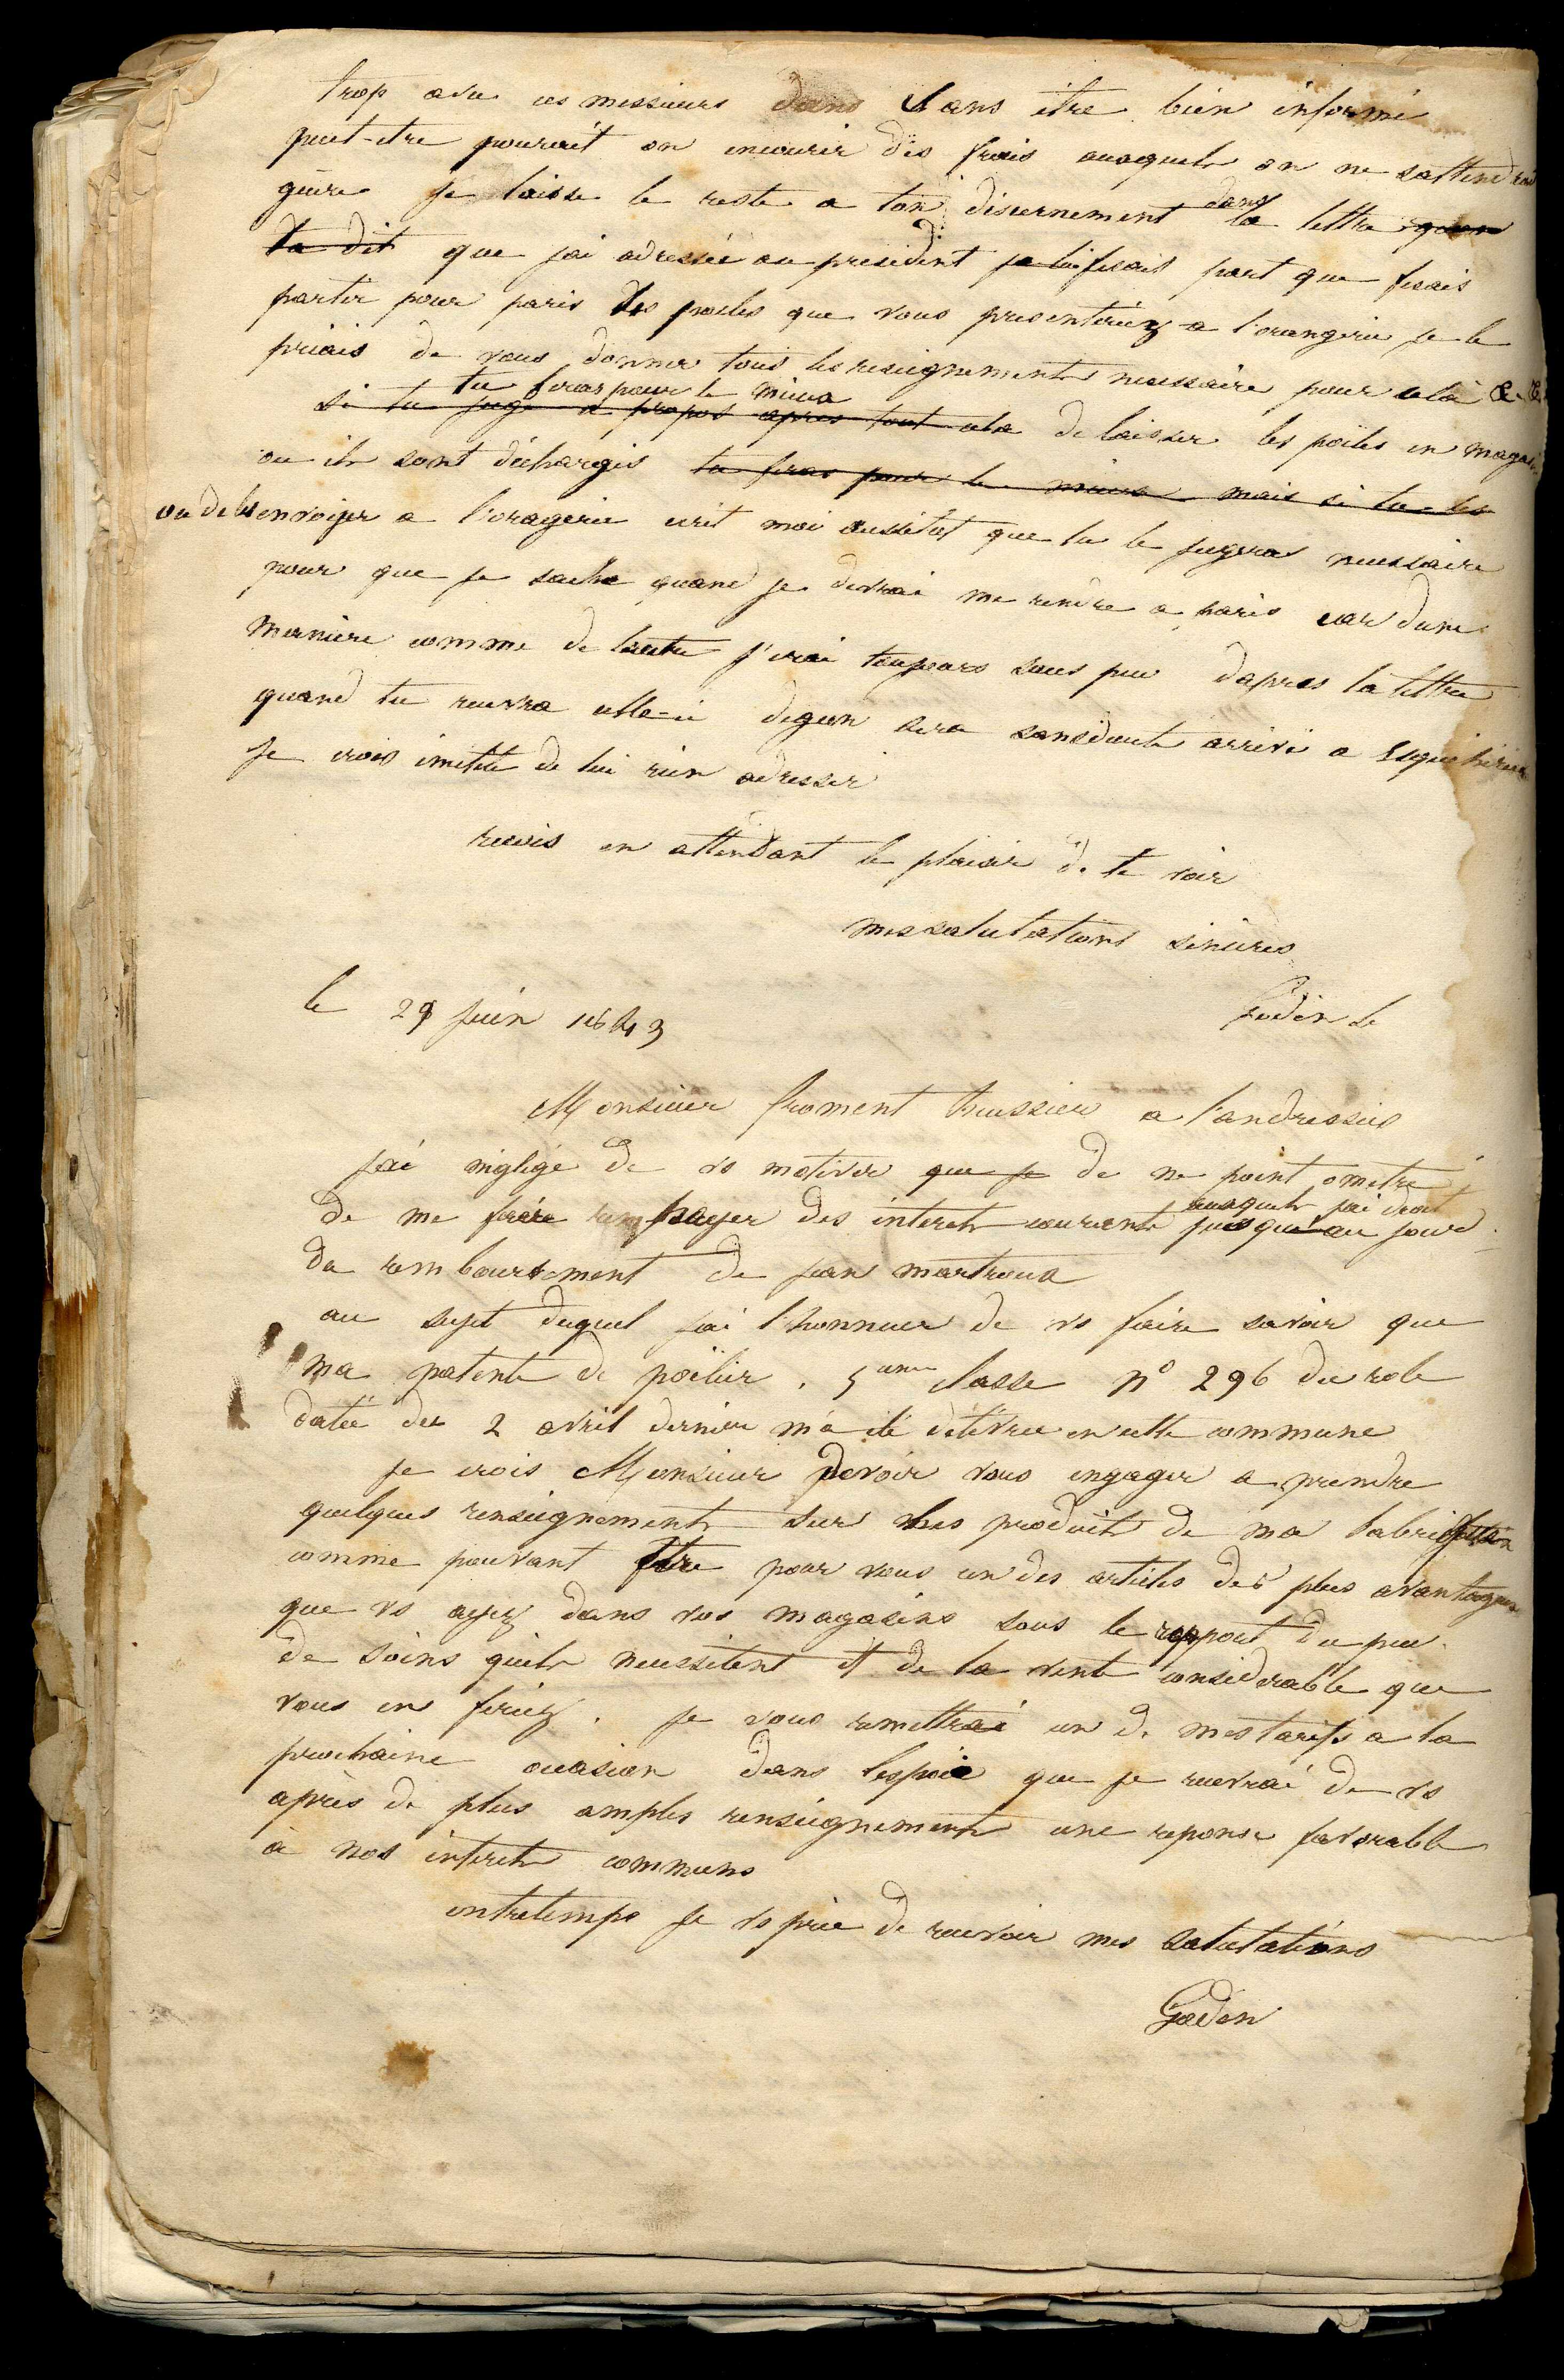 trop avec ces messieurs dans sans être bien informé
peut-etre pourait on encourir des frais auxquels on ne sattendrai
guère je laisse le reste a ton discernement dans la lettre
ta dit que jai adressée au president je lui fesais part que fesais
partir pour paris des poeles que vous presenteriez a l'orangerie je le
priais de vous donner tous les reseignements necessaire pour cela &. &.
tu feras pour le mieux
si tu juge a propos apres tout cela de laisser les poëles en magasin
ou ils sont déchargés tu feras pour le mieux mais si tu les
ou de les envoiyer a l'oragerie ecrit moi aussitot que tu le jugeras necessaire
pour que je sache quand je devrai me rendre a paris car dune
maniere comme de lautre j'irai toujours sous peu dapres la lettre
quand tu recevra celle-ci degon sera sans doute arrivé a Esquehéries
je crois inutile de lui rien adresser
recois en attendant le plaisir de te voir
mes salutations sincères
Godin Le
le 29 juin 1843
Monsieur froment huissier a Landressies
jai néglige de vs motiver que je de ne point ometre
de me faire payer des interets courants auxquels jai droit jusqu'au jour
du remboursement de jean martroux
au sujet duquel jai l'honneur de vs faire savoir que
ma patente de poëlier . 5eme classe n° 296 du role
datée du 2 avril dernier m'a été délivrée en cette commune
je crois Monsieur devoir vous engager a prendre
quelques renseignements sur les produits de ma fabrication
comme pouvant être pour vous un des articles des plus avantageux
que vs ayez dans vos magasins sous le rapport du peu
de soins quils necessitent et de la vente considerable que
vous en feriez . je vous remettrai un de mes tarifs a la
prochaine occasion dans lespoir que je recevrai de vs
après de plus amples renseignements une reponse favorable
à nos interets communs
entretemps je vs prie de recevoir mes salutations
Godin